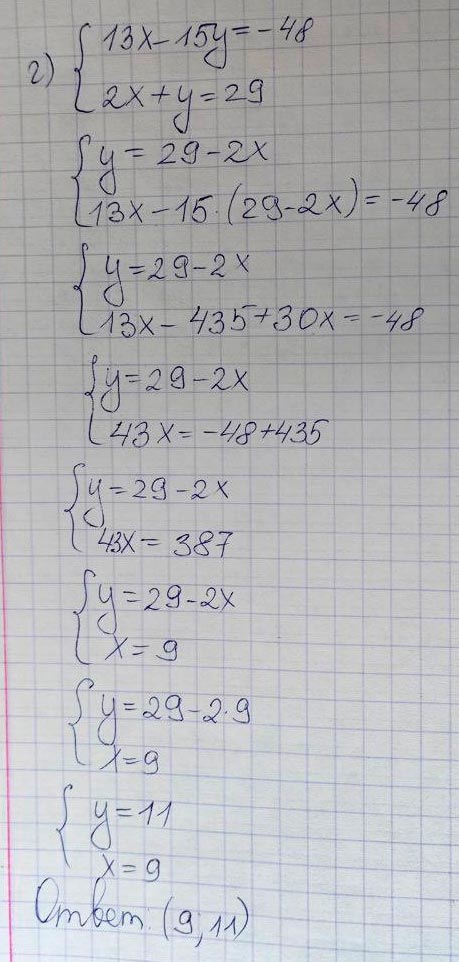 г) { 13x-15y=-48
2x+y=29
{ y=29-2x
13x-15·(29-2x)=-48
{ y=29-2x
13x-435+30x=-48
{ y=29-2x
43x=-48+435
{ y=29-2x
43x=387
{ y=29-2x
x=9
{ y=29-2·9
x=9
{ y=11
x=9
Ответ: (9; 11)